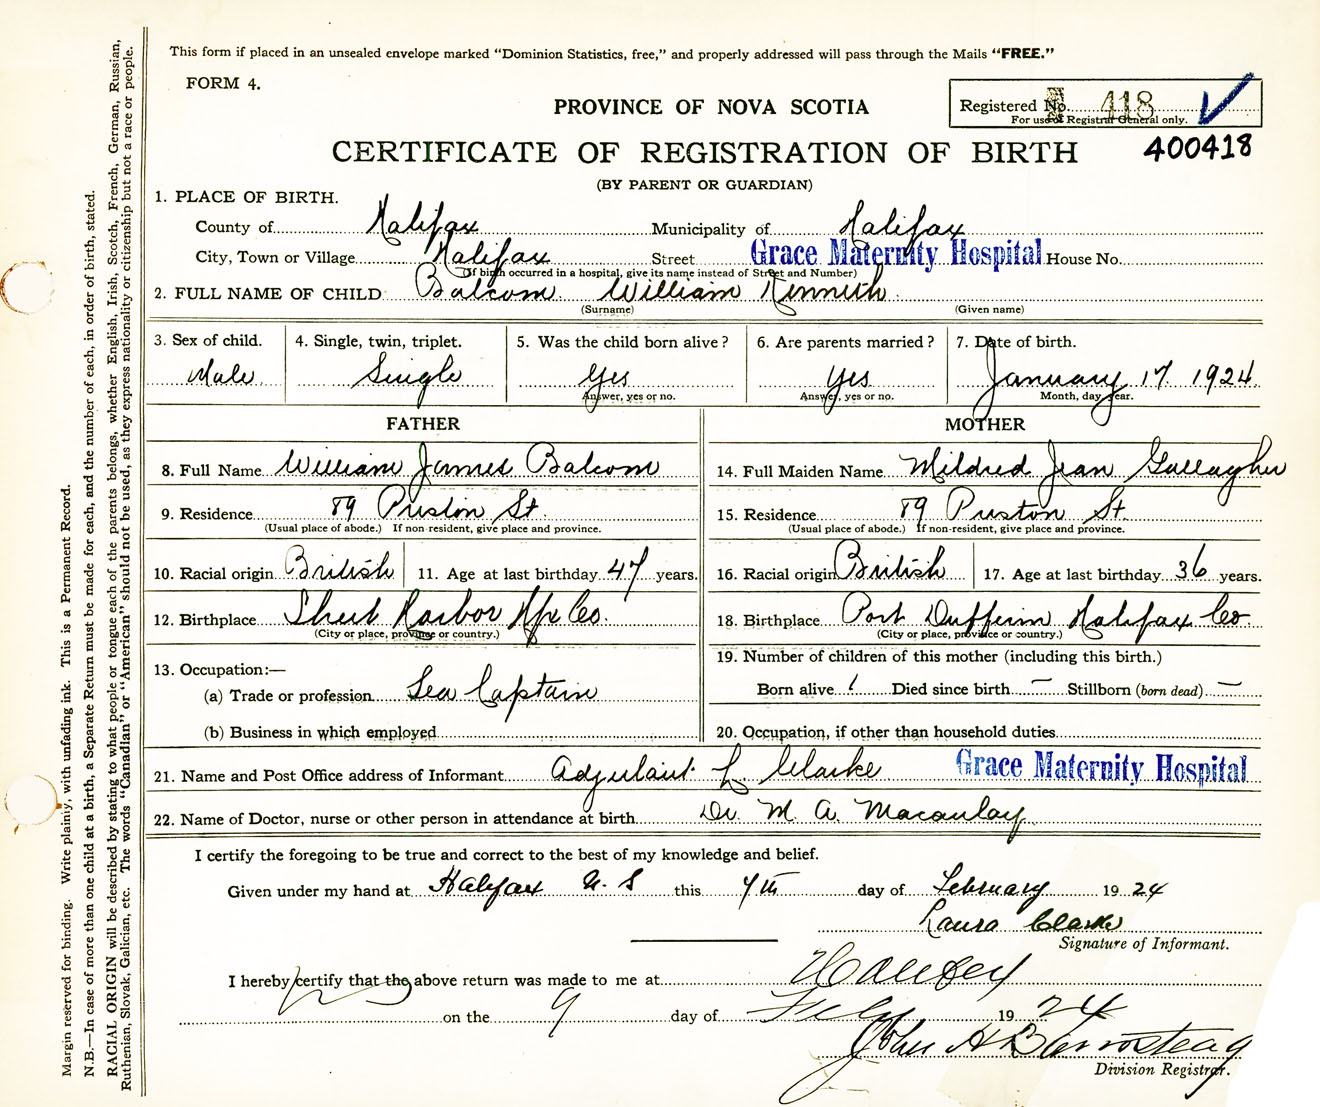 This form if placed in an unsealed envelope marked "Dominion Statistics, free," and properly addressed will pass through the Mails "FREE."
FORM 4.
Registered No. 418
For use of Registrar General only.
PROVINCE OF NOVA SCOTIA
400418
CERTIFICATE OF REGISTRATION OF BIRTH
(BY PARENT OR GUARDIAN)
1. PLACE OF BIRTH.
County of Halifax Municipality of Halifax
City, Town or Village Halifax Street Grace Maternity Hospital House No.
(If birth occurred in a hospital, give its name instead of Street and Number)
2. FULL NAME OF CHILD Balcom William Kenneth
(Surname) (Given name)
3. Sex of child. 4. Single, twin, triplet. 5. Was the child born alive? 6. Are parents married? 7. Date of birth.
Male Single Yes Yes January 17 1924
Answer, yes or no. Answer, yes or no. Month, day, year.
FATHER MOTHER
8. Full Name William James Balcom 14. Full Maiden Name Mildred Jean Gallagher
9. Residence 89 Preston St. 15. Residence 89 Preston St.
(Usual place of abode.) If non-resident, give place and province. (Usual place of abode.) If non-resident, give place and province.
10. Racial origin British 11. Age at last birthday 47 years. 16. Racial origin British 17. Age at last birthday 36 years.
12. Birthplace Sheet Harbor Hfx Co. 18. Birthplace Port Dufferin Halifax Co.
(City or place, province or country.) (City or place, province or country.)
13. Occupation:— 19. Number of children of this mother (including this birth.)
(a) Trade or profession Sea Captain Born alive 1 Died since birth — Stillborn (born dead) —
(b) Business in which employed 20. Occupation, if other than household duties
21. Name and Post Office address of Informant Adjutant L. Clarke Grace Maternity Hospital
22. Name of Doctor, nurse or other person in attendance at birth Dr. M. A. Macaulay
I certify the foregoing to be true and correct to the best of my knowledge and belief.
Given under my hand at Halifax N. S this 7th day of February 1924
Laura Clarke
Signature of Informant.
I hereby certify that the above return was made to me at
on the 9 day of 1924
John H Barnstead
Division Registrar.
Margin reserved for binding. Write plainly, with unfading ink. This is a Permanent Record.
N.B.—In case of more than one child at a birth, a Separate Return must be made for each, and the number of each, in order of birth, stated.
RACIAL ORIGIN will be described by stating to what people or tongue each of the parents belongs, whether English, Irish, Scotch, French, German, Russian,
Ruthenian, Slovak, Galician, etc. The words "Canadian" or "American" should not be used, as they express nationality or citizenship but not a race or people.